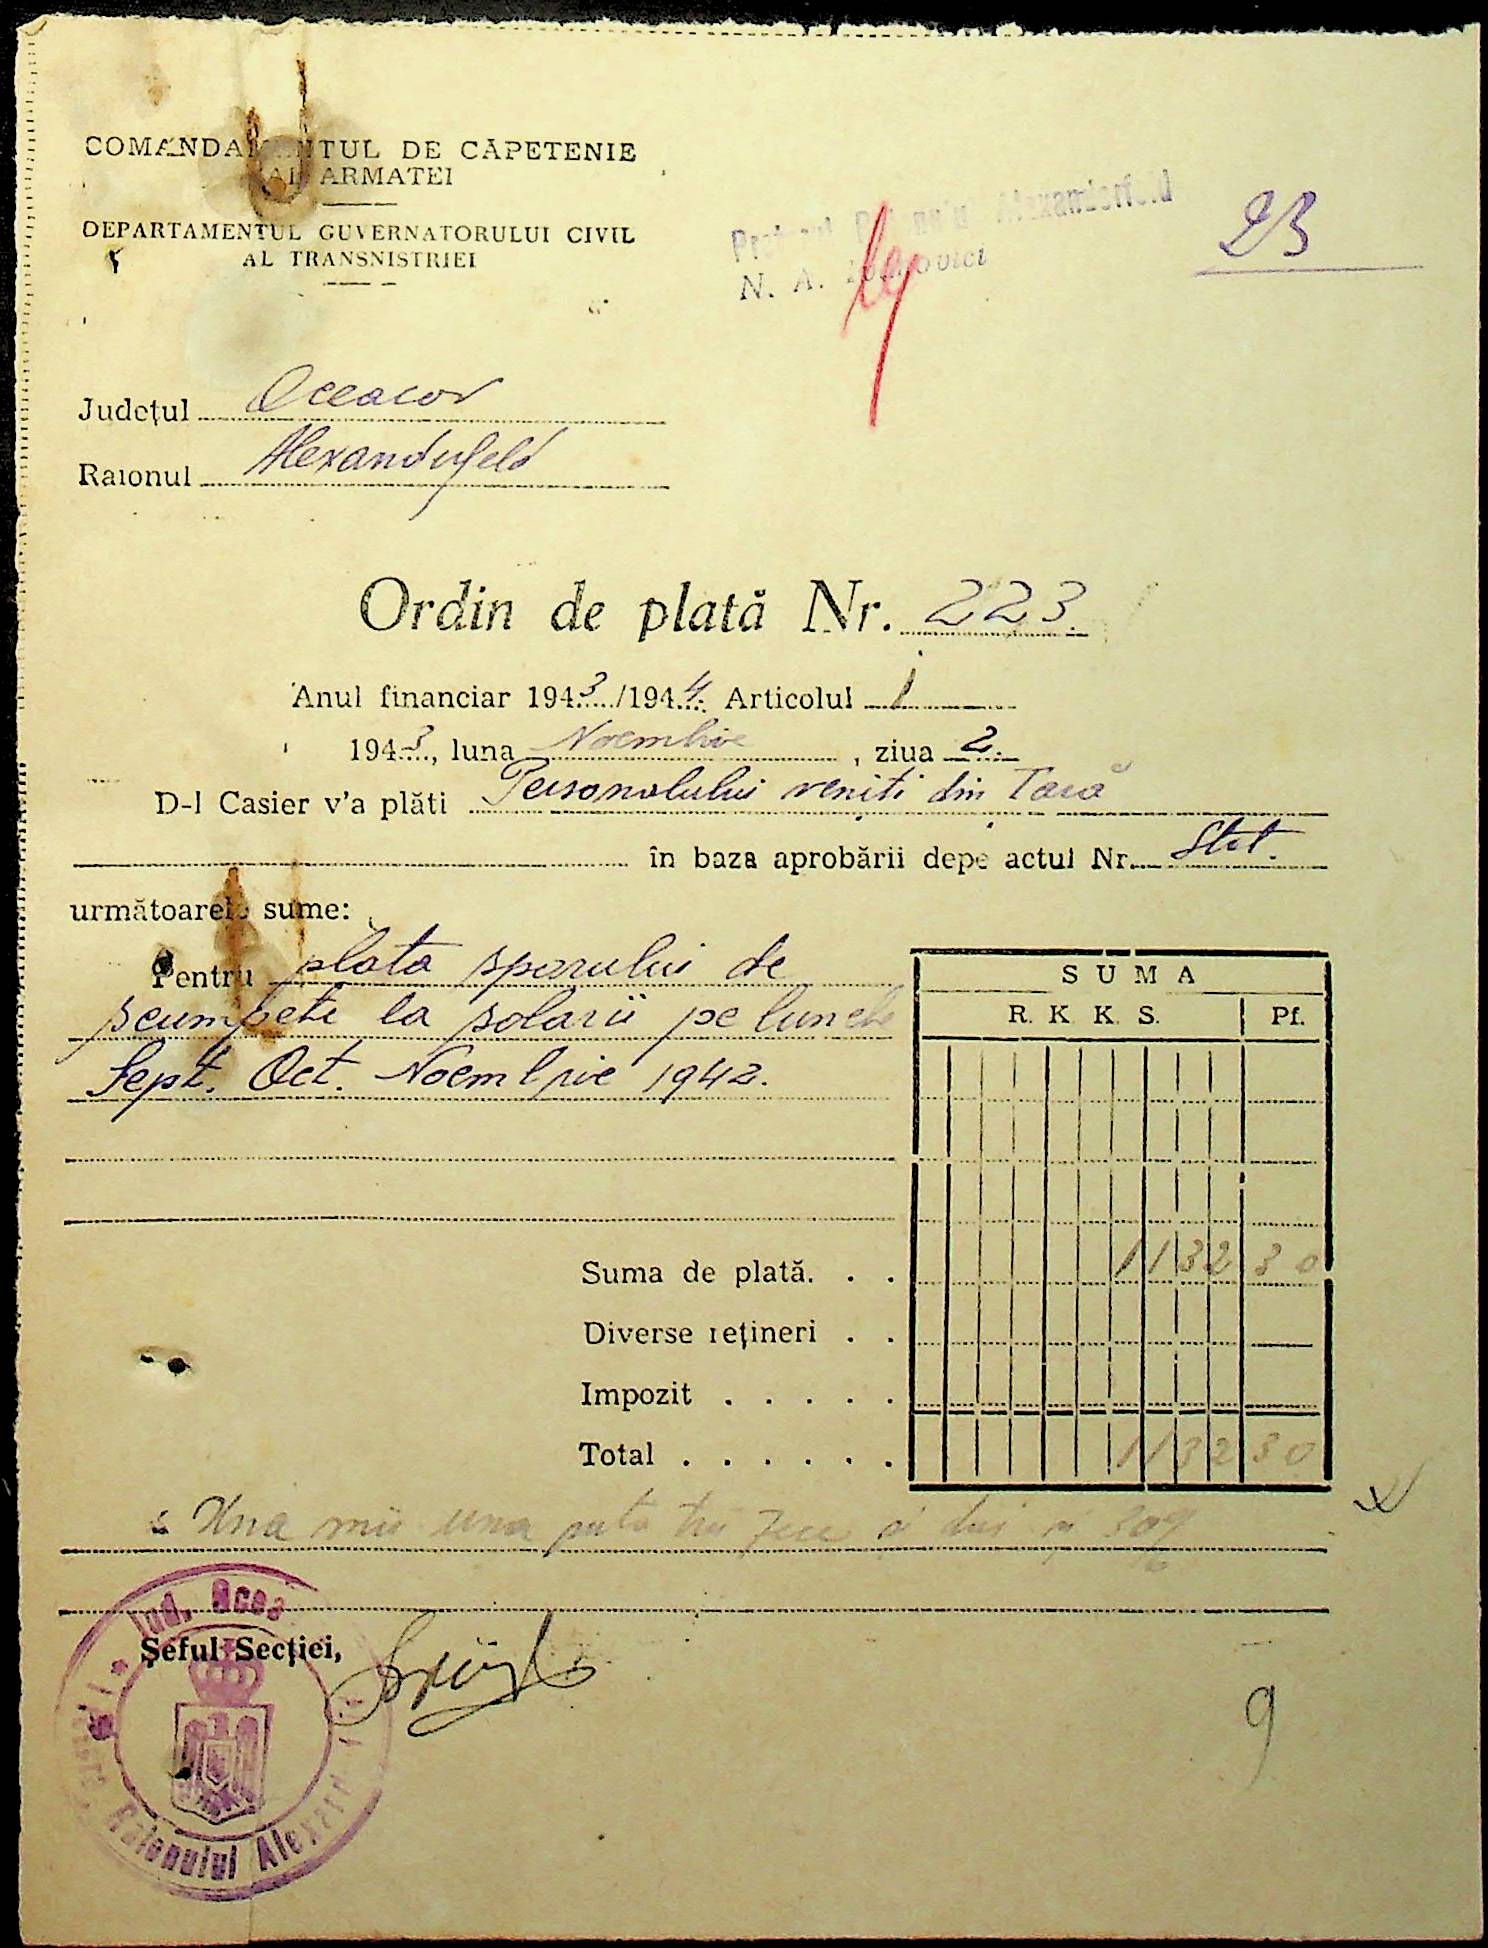 COMANDAMENTUL DE CĂPETENIE
AL ARMATEI
DEPARTAMENTUL GUVERNATORULUI CIVIL
AL TRANSNISTRIEI
Alexanderfeld
N. A.
23
Județul Oceacov
Raionul Alexanderfeld
Ordin de plată Nr. 223.
Anul financiar 1943/1944. Articolul 1
1943, luna Noembrie, ziua 2.
D-l Casier v'a plăti Personalului veniti din Tară
în baza aprobării depe actul Nr. Stat.
următoarele sume:
Pentru plata sporului de
scumpete la solarii pe lunele
Sept. Oct. Noembrie 1942.
SUMA
R. K. K. S. Pf.
Suma de plată. . . 1132 30
Diverse rețineri . .
Impozit . . . . .
Total . . . . . . 1132 30
Una mii una suta trei zeci si doi si 30%
Jud. Ocea
Șeful Secției,
Raionului Alexan
9